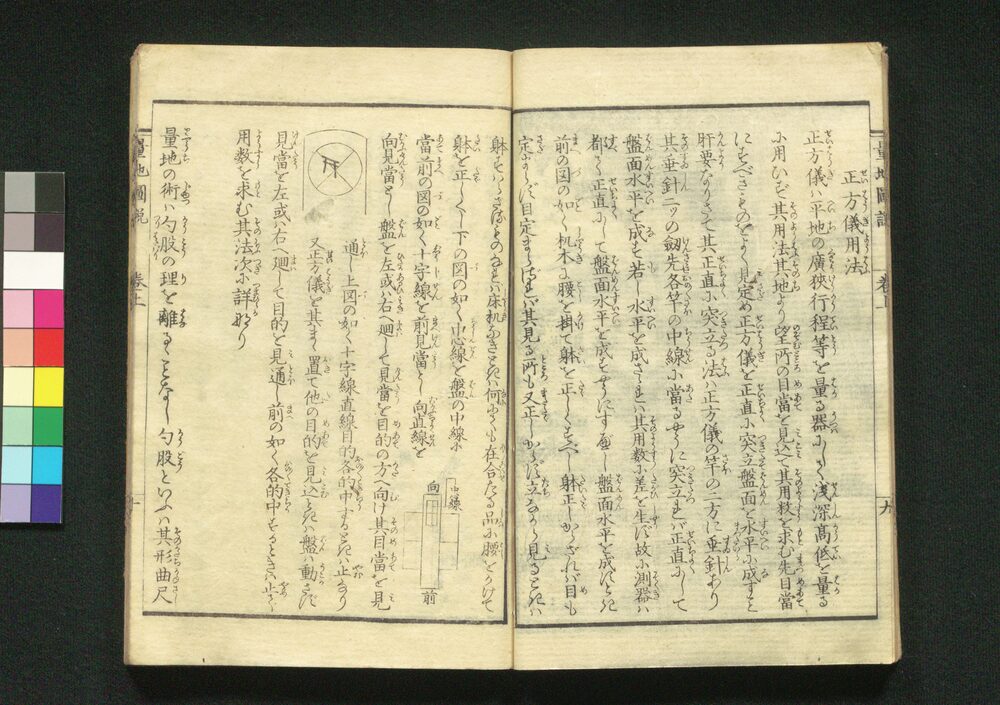 量地圖説
卷上
九
正方儀用法
正方儀ハ平地の廣狹行程等を量る器にして浅深高低を量る
に用ひず其用法其地より望所の目當を見込て其用数を求む先目當
にすべきものをよく見定め正方儀を正直に突立盤面を水平に成すこと
肝要なりさて其正直に突立る法ハ正方儀の竿の二方に垂針あり
其垂針二ッの劔先各竿の中線に當るやうに突立れバ正直にして
盤面水平を成も若し水平を成さゞれバ其用数に差を生ず故に測器ハ
都て正直にして盤面水平を成
前の図の如く机木に腰を掛て躰を正しくすべし躰正しからざれバ目も
定まらず目定まらざれバ其見る所も又正しからず立ながら見るときハ
躰
躰を正しくし下の図の如く中心線を盤の中線に
當前の図の如く十字線を前見當とし向直線を
向見當とし盤を左或ハ右へ廻して見當を目的の方へ向け其目當を見
通し上図の如く十字線直線目的各的中するときハ止なり
又正方儀を其まゝ置て他の目的を見込ときハ盤ハ動さず
見當を左或ハ右へ廻して目的を見通し前の如く各的中するときハ止る
用数を求む其法次に詳なり
向
中線
前
量地の術ハ勾股の理を離るゝことなし勾股といふハ其形曲尺
量地圖説
卷上